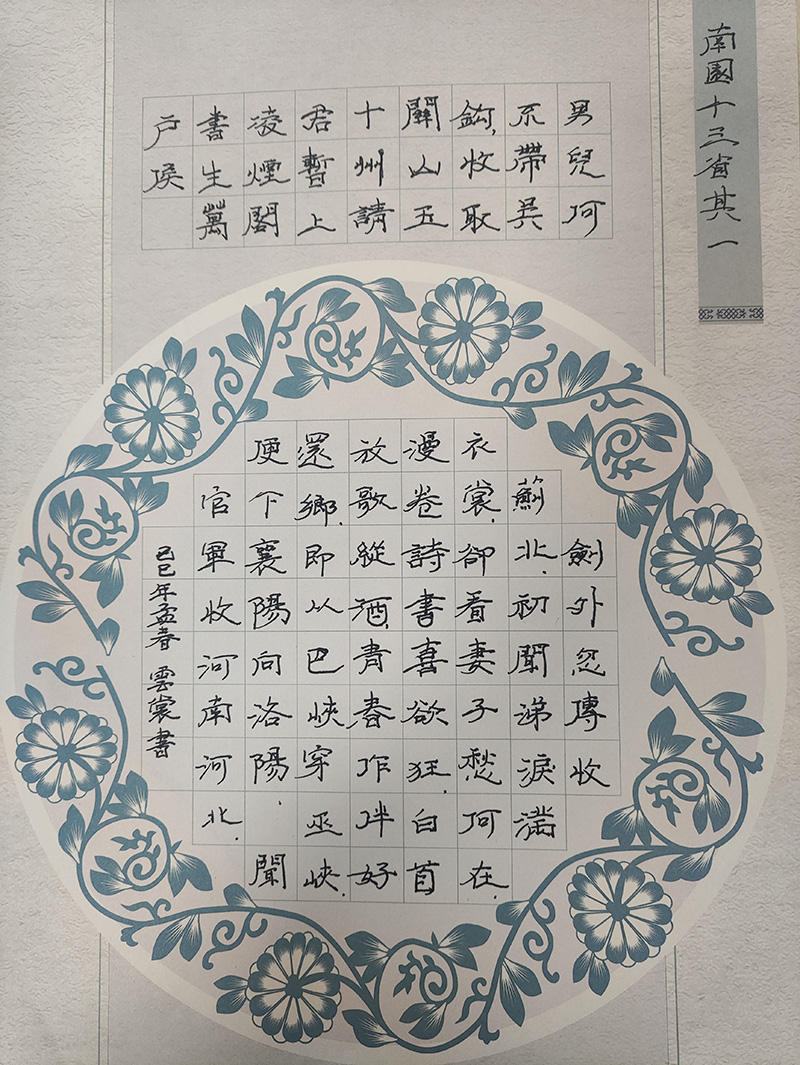 南園十三省其一
男兒何
不帶吳
鉤,收取
關山五
十州請
君暫上
凌煙閣
書生萬
戶侯
劍外忽傳收
薊北.初聞涕淚滿
衣裳.卻看妻子愁何在.
漫卷詩書喜欲狂.白首
放歌縱酒.青春作伴好
還鄉.即从巴峽穿巫峽.
便下襄陽向洛陽.聞
官軍收河南河北.
己巳年孟春 雲裳書